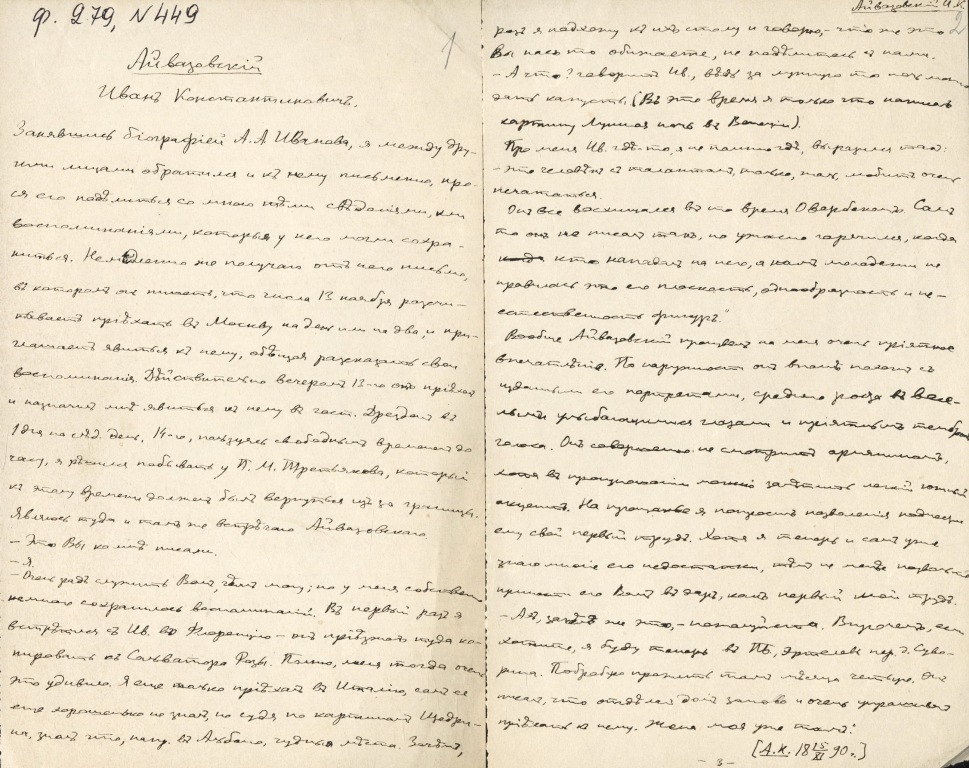 ф. 279, N 449
1
Айвазовскій
Иванъ Константиновичъ.
Занявшись біографіей А. А. Иванова, я между дру-
гими лицами обратился и къ нему письменно, про-
ся его подѣлиться со мною тѣми свѣдѣніями, или
воспоминаніями, которыя у него могли сохра-
ниться. Немедленно же получаю отъ него письмо,
въ которомъ онъ пишетъ, что числа 13 ноября разсчи-
тываетъ пріѣхать въ Москву на день или на два, и при-
глашаетъ явиться къ нему, обѣщая разсказать свои
воспоминанія. Дѣйствительно вечеромъ 13-го онъ пріѣхал
и назначил мнѣ явиться къ нему въ гост. Дрезденъ въ
1 дня на слѣд. день. 14-го, пользуясь свободнымъ временемъ до
часу, я рѣшился побывать у П. М. Третьякова, который
къ этому времени должен былъ вернуться изъ за границы.
Являюсь туда и тамъ же встрѣчаю Айвазовскаго.
– Это Вы ко мнѣ писали.
– Я.
– Очень радъ служить Вамъ, чѣмъ могу; но у меня собственно
немного сохранилось воспоминаній. Въ первый разъ я
встрѣтился съ Ив. во Флоренціи – онъ пріѣзжалъ туда ко-
пировать съ Сальватора Розы. Помню, меня тогда очень
это удивило. Я еще только пріѣхалъ въ Италію, самъ ее
еще хорошенько не зналъ, но судя по картинамъ Щедри-
на, зналъ что, напр. въ Альбано, чудныя мѣста. Зачѣмъ,
Айвазовскій И. К.
2
разъ я подхожу къ ихъ столу и говорю, – что же это
Вы насъ то обижаете, не подѣлитесь съ нами.
– А что? говоритъ Ив., вѣдь за лунную то ночь можно
дать капусты. (Въ это время я только что написалъ
картину Лунная ночь въ Венеціи).
Про меня Ив. гдѣ-то, я не помню гдѣ, выразился такъ:
– это человѣкъ съ талантомъ, только, жаль, любитъ очень
печататься.
Онъ все восхищался въ то время Овербекомъ. Самъ
то онъ не писалъ такъ, но ужасно горячился, когда
кто нападалъ на него, а намъ молодежи не
нравилась эта его плоскость, однообразность и не-
естественность фигуръ."
Вообще Айвазовскій произвелъ на меня очень пріятное
впечатлѣніе. По наружности онъ вполнѣ похожъ съ
изданными его портретами, средняго роста съ весе-
лыми улыбающимися глазами и пріятнымъ тембромъ
голоса. Онъ совершенно не смотритъ армяниномъ,
хотя въ произношеніи можно замѣтить легкій южный
акцентъ. На прощанье я попросилъ позволенія поднести
ему свой первый трудъ. Хотя я теперь и самъ уже
знаю многіе его недостатки, тѣмъ не менѣе позвольте
принести его Вамъ въ даръ, какъ первый мой трудъ.
– Ахъ, зачѣмъ же это, – пожалуйста. Впрочемъ, если
хотите, я буду теперь въ ПБ, Эртелевъ пер. д. Суво-
рина. Подробно прожить тамъ мѣсяца четыре. Онъ
писал, что отдѣлалъ домъ заново и очень упрашивалъ
пріѣхать къ нему. Жена моя уже тамъ."
[А. К. 18 15/XI 90 г.]
– 3 –